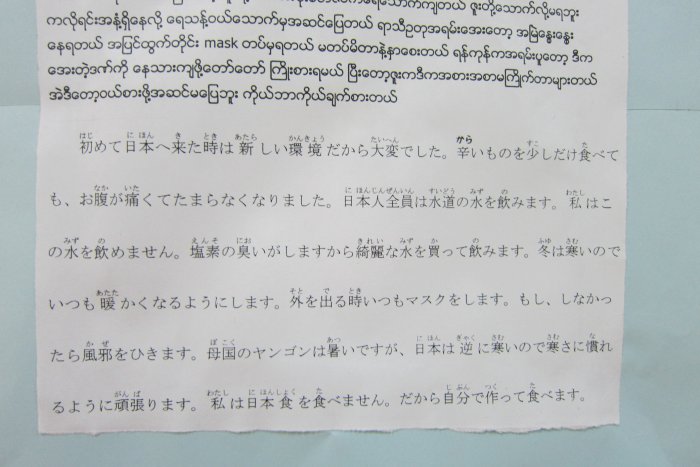 ကလိုရင်းအနံ့ရှိနေလို့ ရေသန့်ဝယ်သောက်မှအဆင်ပြေတယ် ရာသီဥတုအရမ်းအေးတော့ အမြဲနွေးနွေး
နေရတယ် အပြင်ထွက်တိုင်း mask တပ်မှရတယ် မတပ်မိတာနဲ့နာစေးတယ် ရန်ကုန်ကအရမ်းပူတော့ ဒီက
အေးတဲ့ဒဏ်ကို နေသားကျဖို့တော်တော် ကြိုးစားရမယ် ပြီးတော့ဇူးကဒီကအစားအစာမကြိုက်တာများတယ်
အဲဒီတော့ဝယ်စားဖို့အဆင်မပြေဘူး ကိုယ်ဘာကိုယ်ချက်စားတယ်
初めて日本へ来た時は新しい環境だから大変でした。辛いものを少しだけ食べて
も、お腹が痛くてたまらなくなりました。日本人全員は水道の水を飲みます。私はこ
の水を飲めません。塩素の臭いがしますから綺麗な水を買って飲みます。冬は寒いので
いつも暖かくなるようにします。外を出る時いつもマスクをします。もし、しなかっ
たら風邪をひきます。母国のヤンゴンは暑いですが、日本は逆に寒いので寒さに慣れ
るように頑張ります。私は日本食を食べません。だから自分で作って食べます。